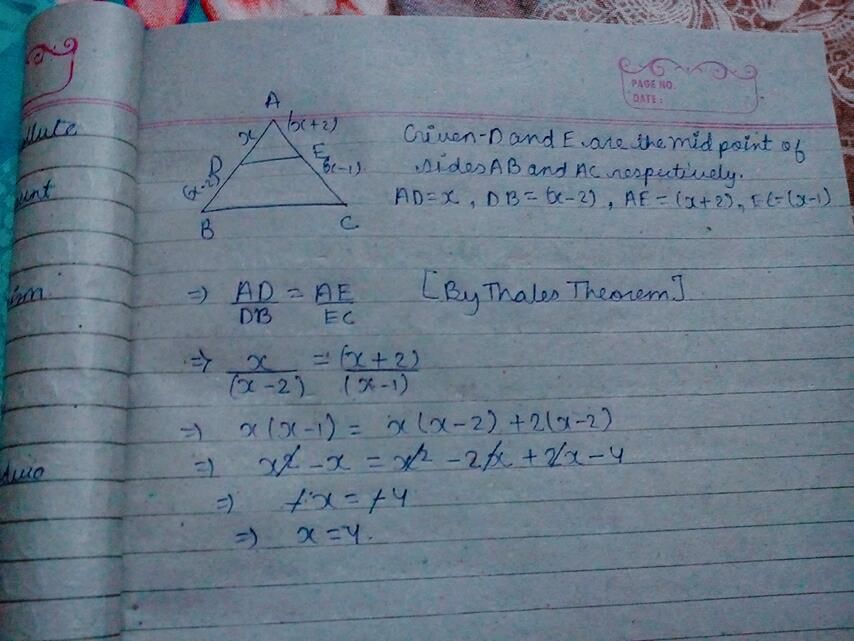 PAGE NO.
DATE:
A
x (x+2)
D E
(x-2) (x-1)
B C
Given-D and E are the mid point of
sides AB and AC respectively.
AD=x, DB=(x-2), AE=(x+2), EC=(x-1)
=> AD/DB = AE/EC [By Thales Theorem]
=> x/(x-2) = (x+2)/(x-1)
=> x(x-1) = x(x-2)+2(x-2)
=> x² -x = x² -2x + 2x-4
=> -x = -4
=> x=4.